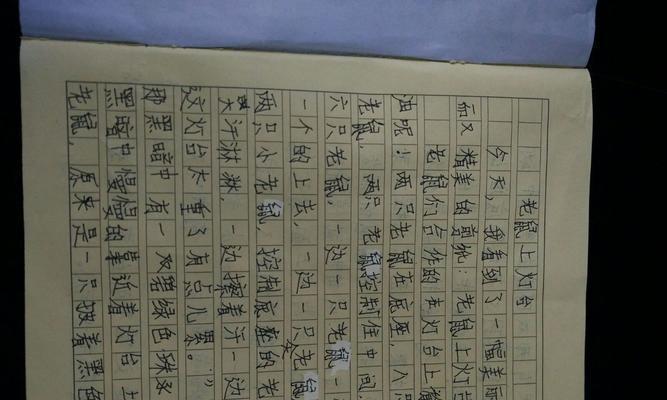 老鼠上灯台
今天,我看到了一幅美丽
而又精美的剪纸:老鼠上灯台
老鼠们合作的在灯台上
油呢!两只老鼠在底座,八只
老鼠,两只老鼠控制住中间,
六只老鼠,一边一只老鼠一
一个的上去,一边一只老鼠
两只小老鼠,控制底座的老
大汗淋淋,一边擦着汗一边
这灯台太重了有点儿累。”
那黑暗中有一双碧绿色珠
黑暗中慢慢的靠近着灯台上
老鼠,原来是一只披着黑色